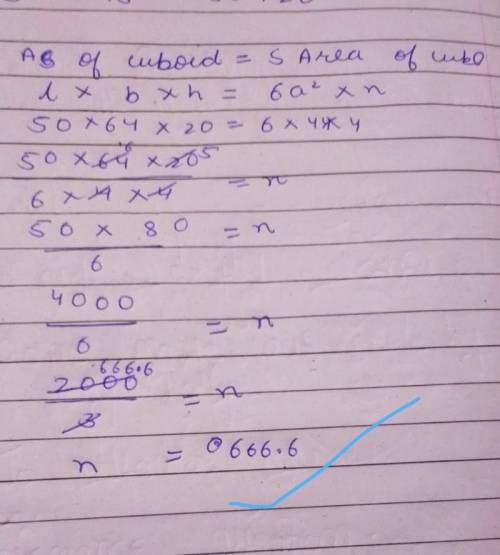 AB of cuboid = S Area of cube
l × b × h = 6a² × n
50 × 64 × 20 = 6 × 4 × 4
50 × 64 × 20 5
6 × 4 × 4 = n
50 × 80 = n
6
4000
6 = n
666.6
2000 = n
3
n = 0666.6